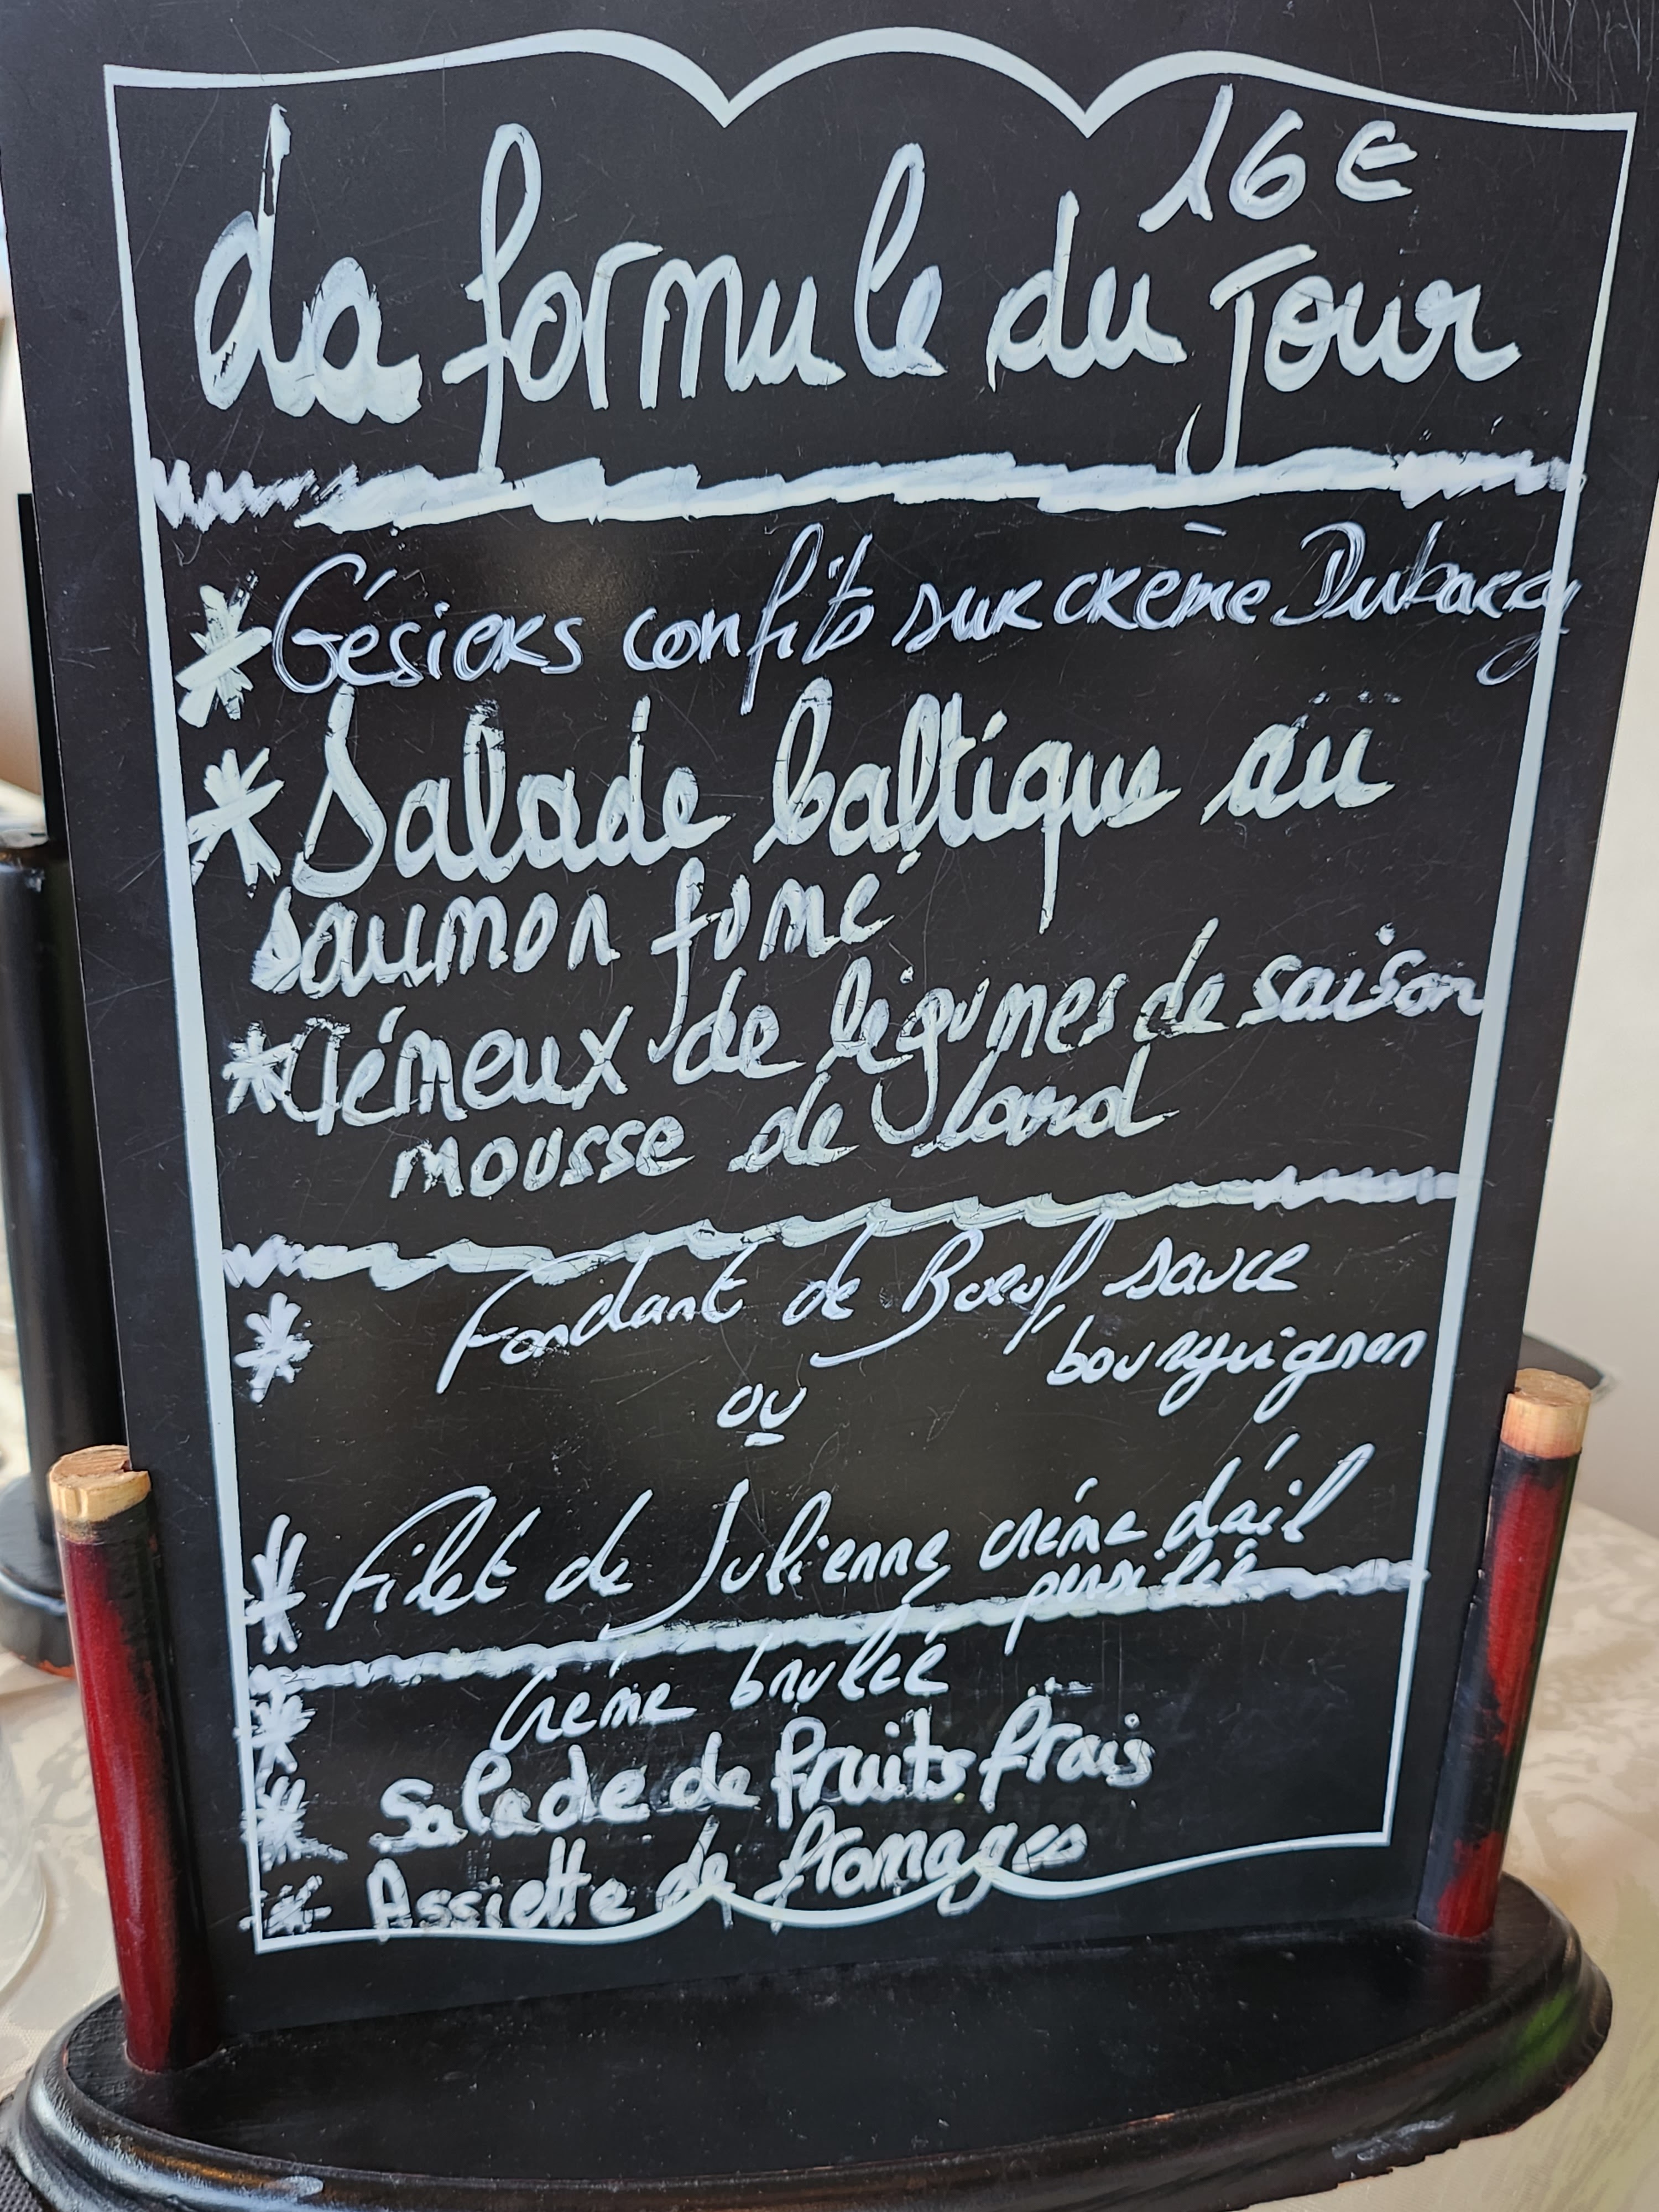 16€
La formule du Jour
* Gésiers confits sur crème Dubarry
* Salade baltique au
saumon fumé
* Crémeux de légumes de saison
mousse de lard
* Fondant de Boeuf sauce
bourguignon
ou
* Filet de Julienne crème d'ail
persillée
* Crème brulée
* Salade de fruits frais
* Assiette de fromages